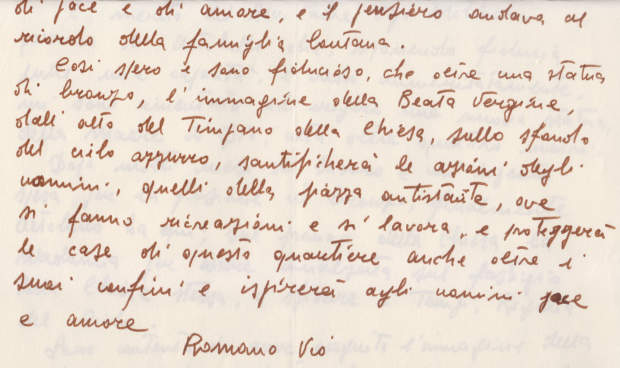 di pace e di amore, e il pensiero andava al
ricordo della famiglia lontana.
Così spero e sono fiducioso, che oltre una statua
di bronzo, l'immagine della Beata Vergine,
dall'alto del Timpano della Chiesa, sullo sfondo
del cielo azzurro, santificherà le azioni degli
uomini, quelli della piazza antistante, ove
si fanno ricreazioni e si lavora, e proteggerà
le case di questo quartiere anche oltre i
suoi confini e ispirerà agli uomini pace
e amore
Romano Vio